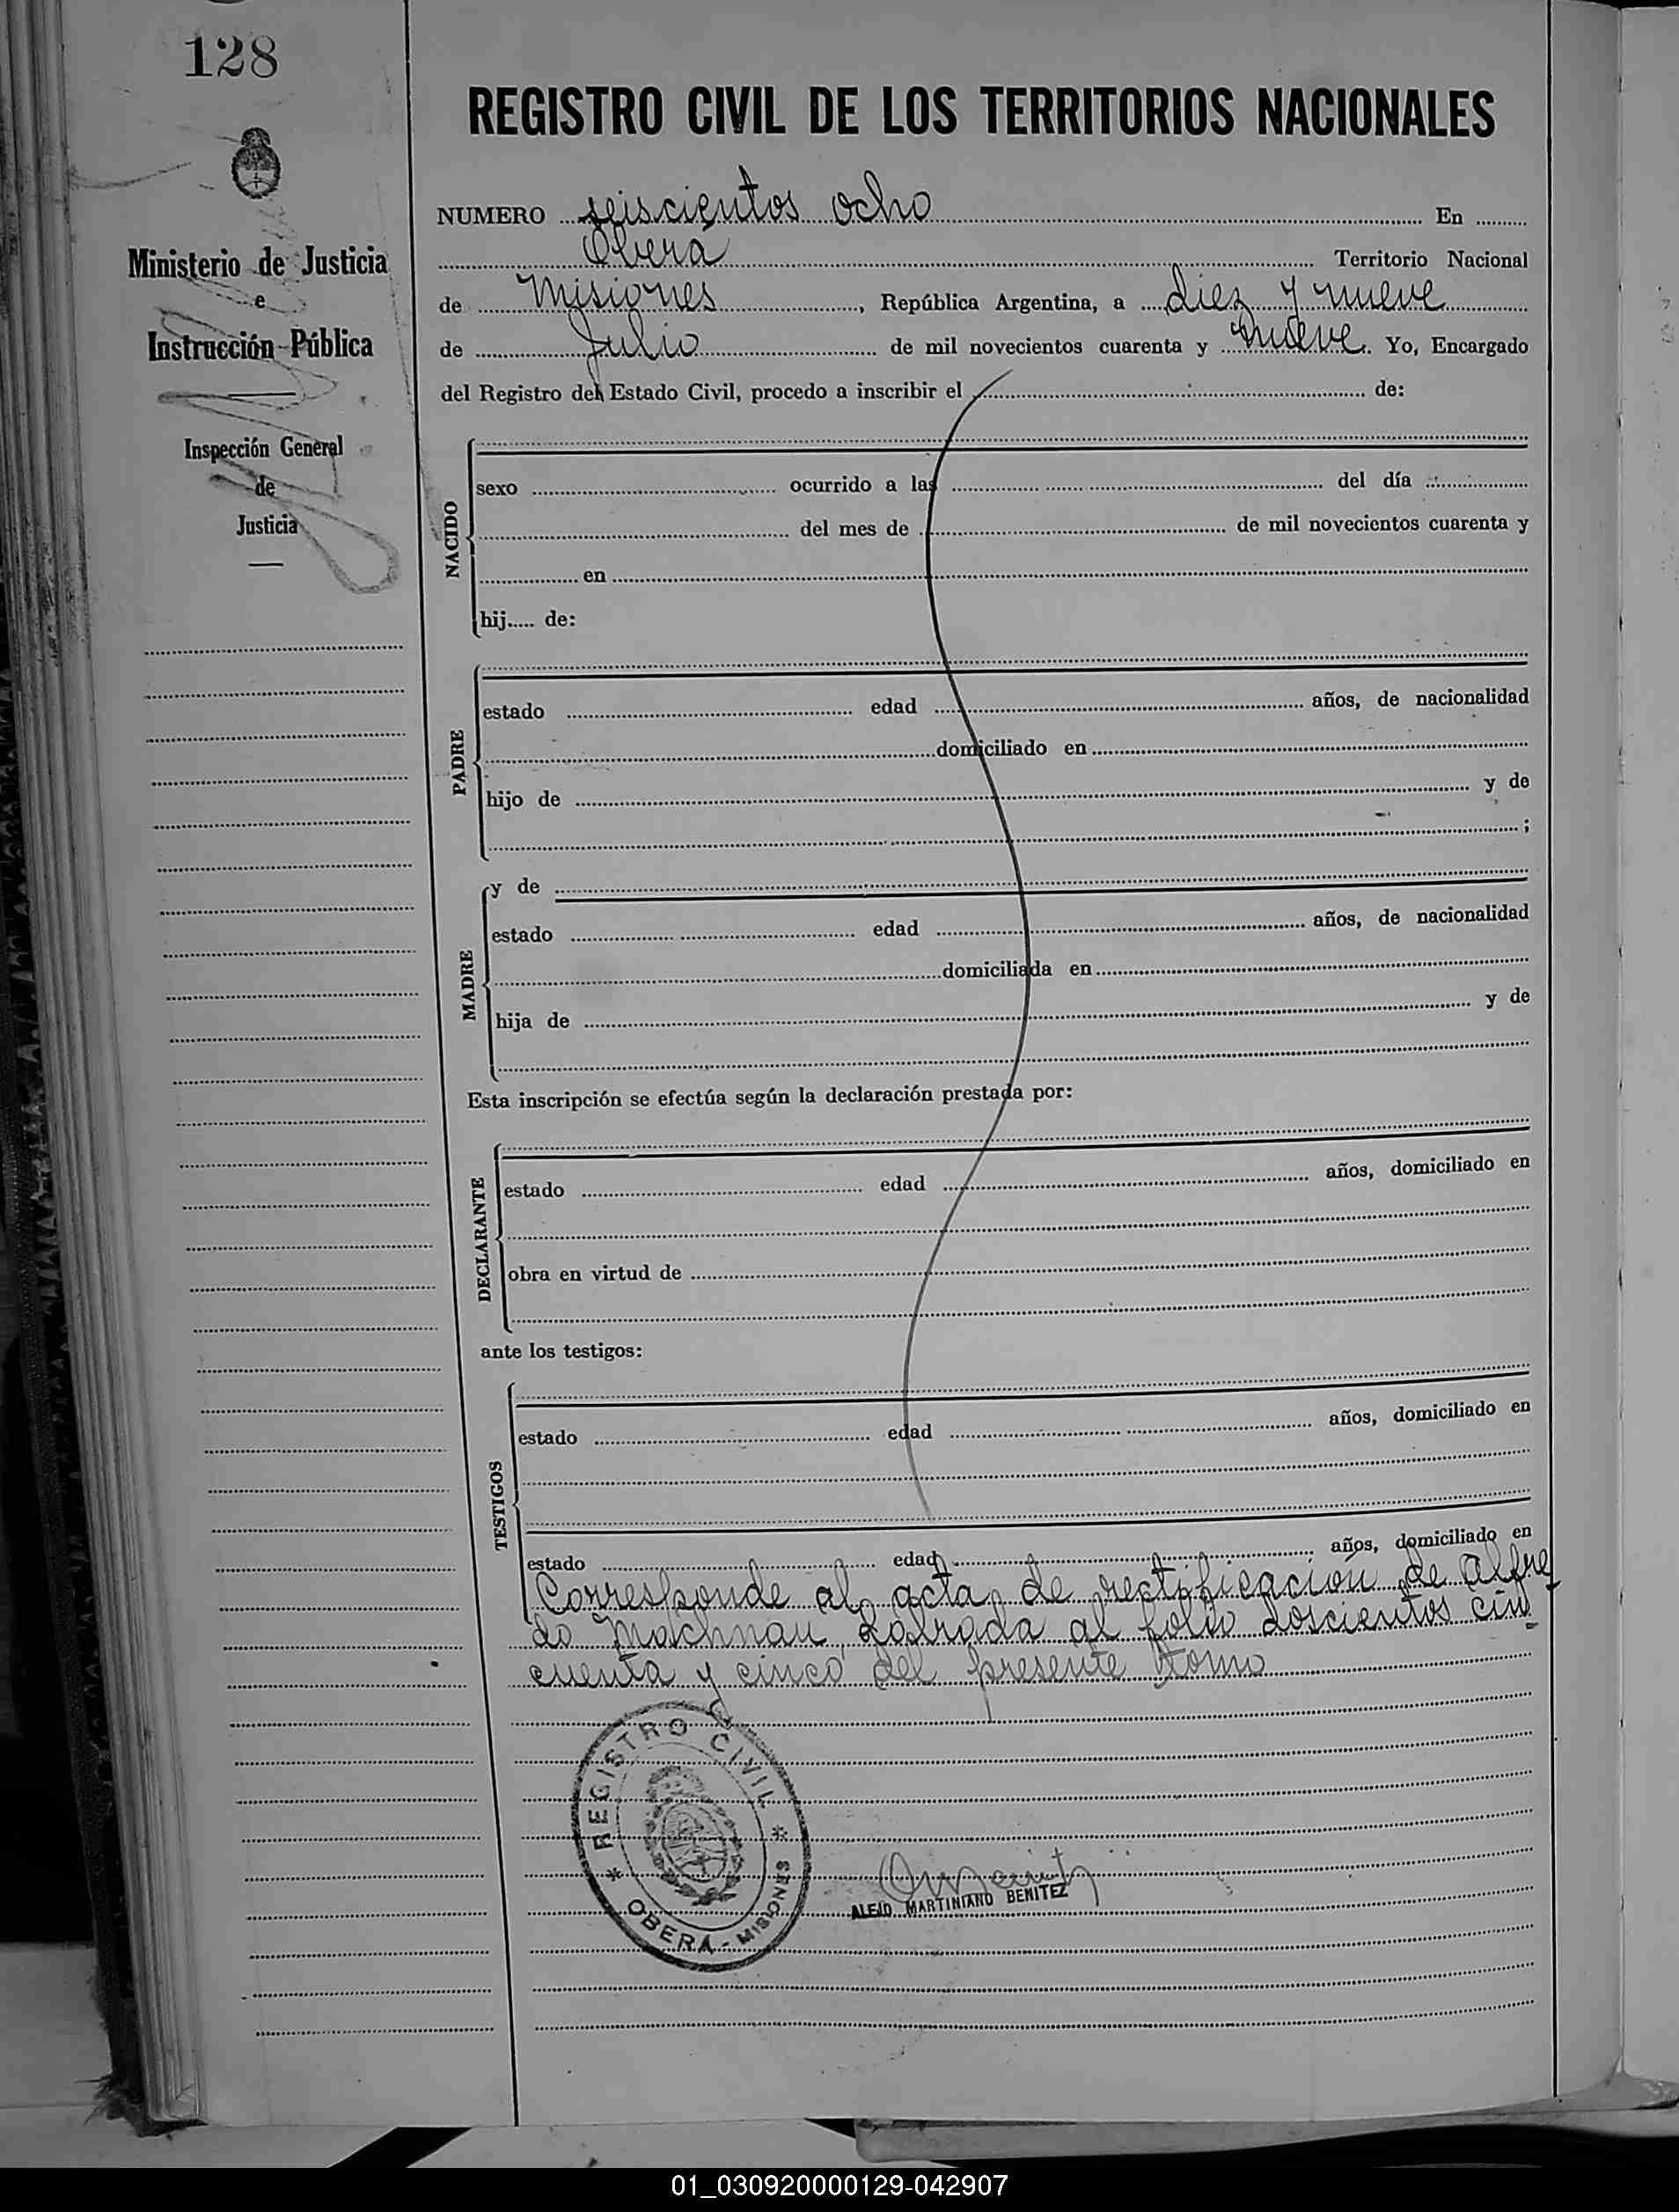 128
REGISTRO CIVIL DE LOS TERRITORIOS NACIONALES
Ministerio de Justicia
e
Instrucción Pública
Inspección General
de
Justicia
NUMERO seiscientos ocho En
Oberá Territorio Nacional
de Misiones, República Argentina, a diez y nueve
de Julio de mil novecientos cuarenta y nueve. Yo, Encargado
del Registro del Estado Civil, procedo a inscribir el de:
NACIDO
sexo ocurrido a las del día
del mes de de mil novecientos cuarenta y
en
hij..... de:
PADRE
estado edad años, de nacionalidad
domiciliado en
hijo de y de
;
MADRE
y de
estado edad años, de nacionalidad
domiciliada en
hija de y de
Esta inscripción se efectúa según la declaración prestada por:
DECLARANTE
estado edad años, domiciliado en
obra en virtud de
ante los testigos:
TESTIGOS
estado edad años, domiciliado en
estado edad años, domiciliado en
Corresponde al acta de rectificacion de Alfre
do Machnau, Labrada al folio doscientos cin
cuenta y cinco del presente tomo
REGISTRO CIVIL
* OBERA - MISIONES *
ALEJO MARTINIANO BENITEZ
01_030920000129-042907